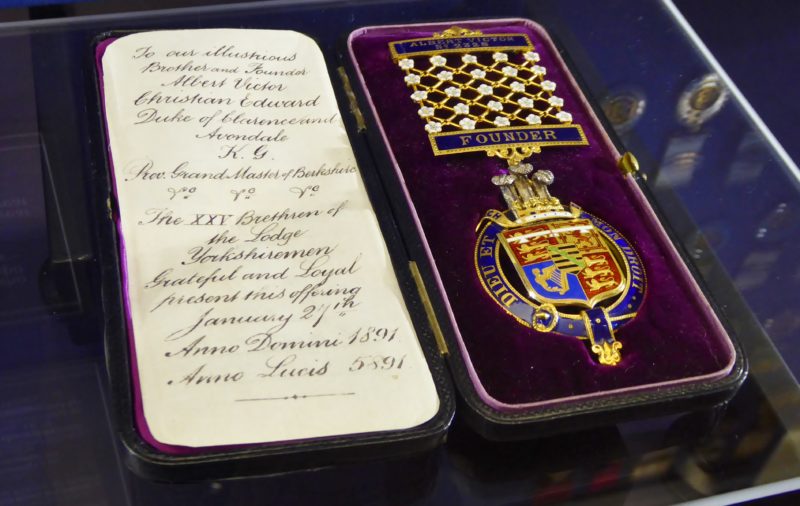 To our illustrious
Brother and Founder
Albert Victor
Christian Edward
Duke of Clarence and
Avondale
K. G.
Prov. Grand Master of Berkshire
The XXV Brethren of
the Lodge
Yorkshiremen
Grateful and Loyal
present this offering
January 27th
Anno Domini 1891
Anno Lucis 5891.
ALBERT VICTOR
No 2328
FOUNDER
DIEU ET MON DROIT